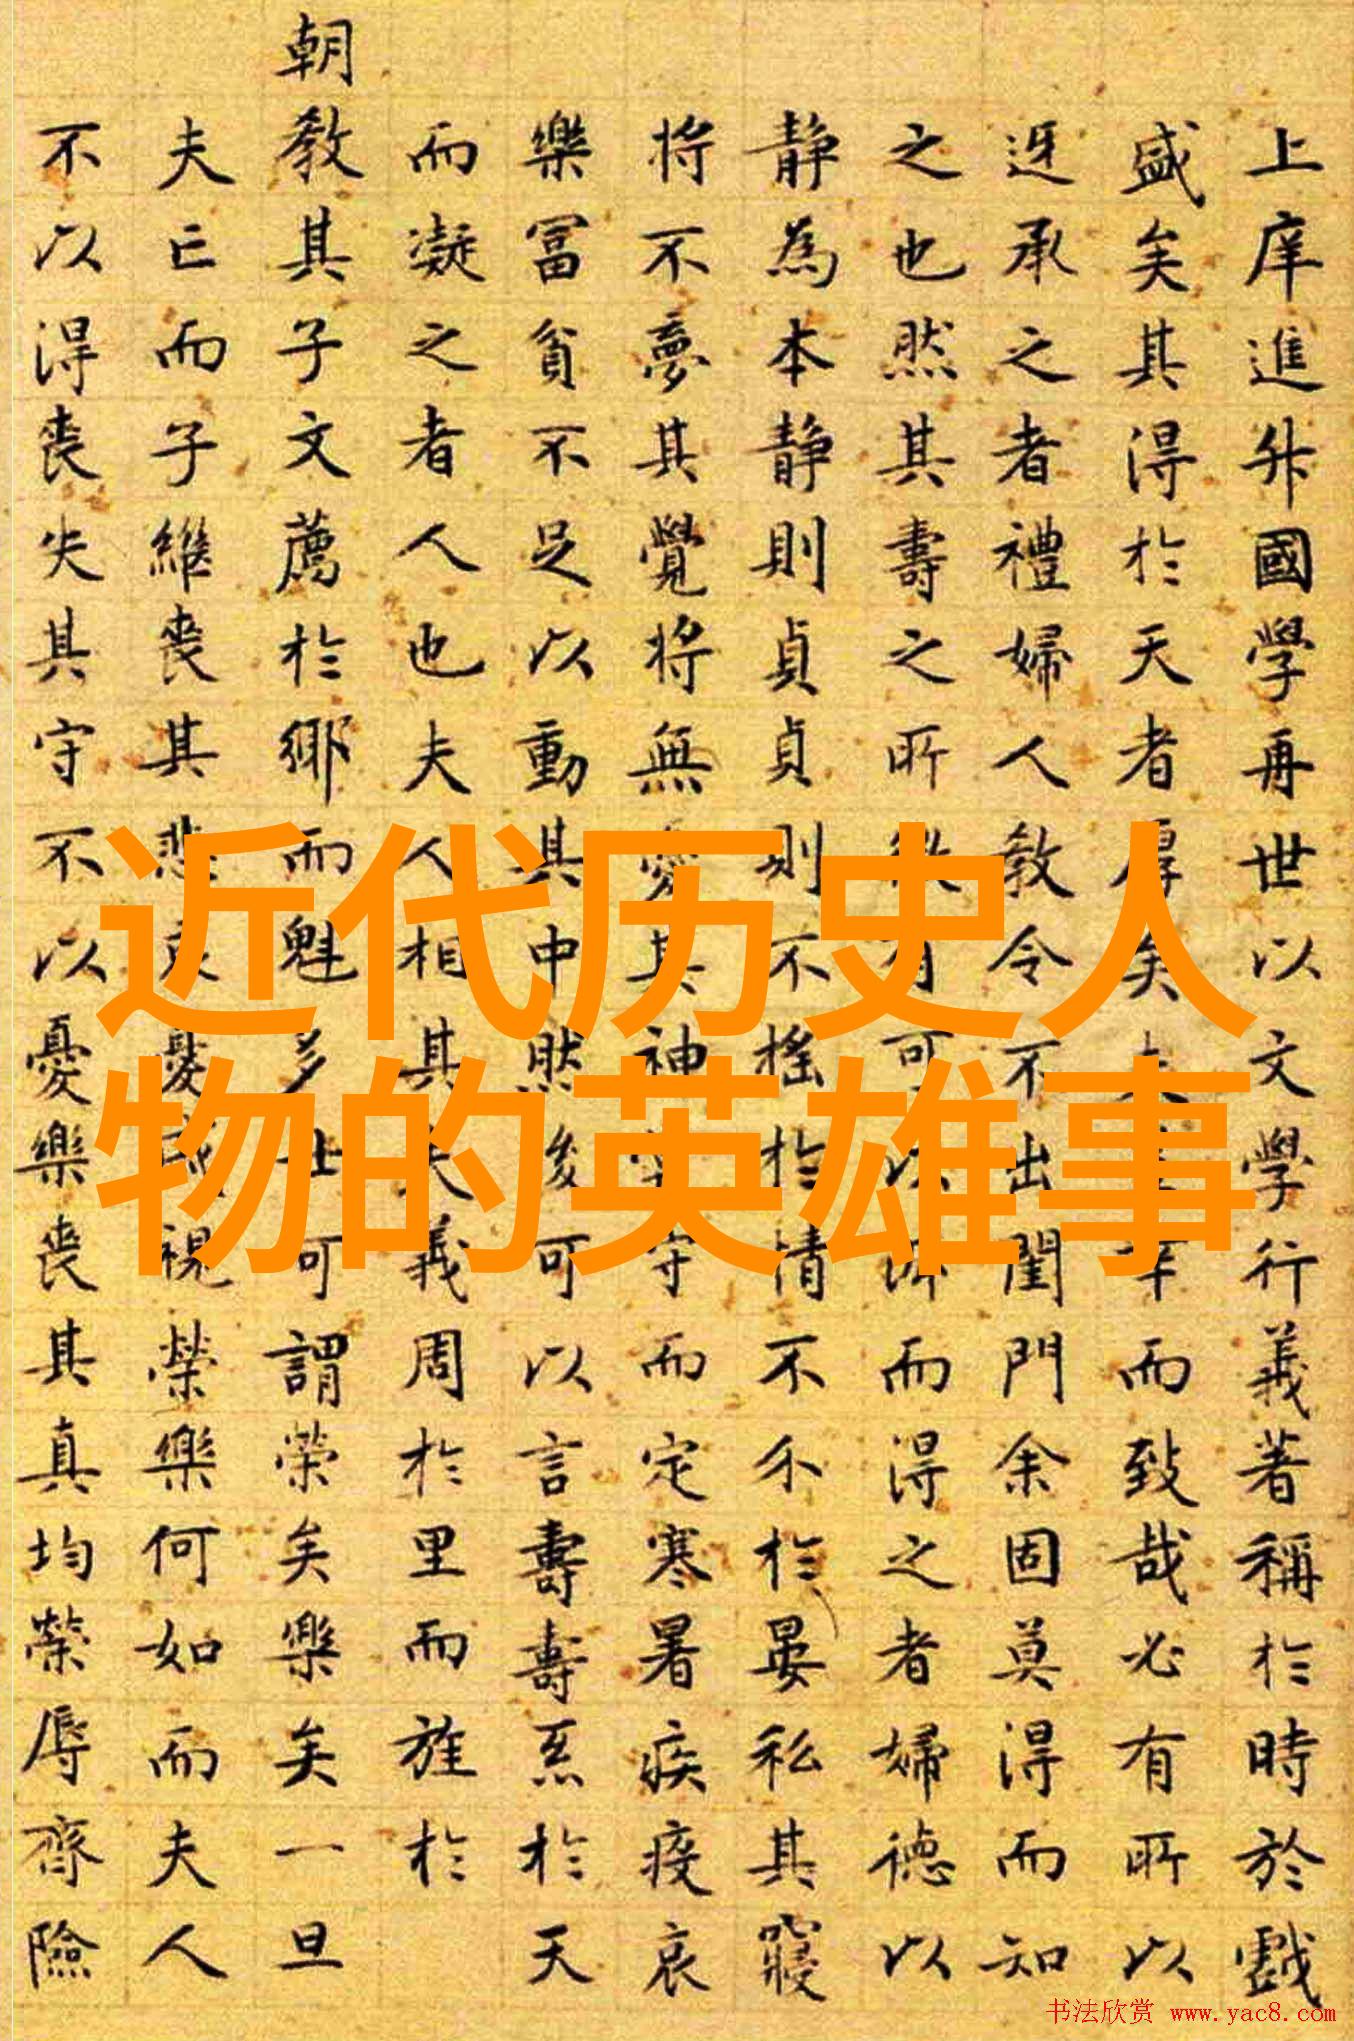 上庠進升國學再世以文學行義著稱於時於戲
盛矣其得於天者厚矣而致哉必有所以
迓承之者禮婦人教令不出閨門余固莫得而知
之也然其壽之所有可以而得之者婦德以
靜為本靜則貞貞則不搖於情不尒於晏私其寢
将不夢其覺将無憂其神守而定寒暑疾疫哀
樂冨貧不足以動其中然後可以言壽壽系於天
而凝之者人也夫人相其夫義周於里而旌於
朝教其子文薦於鄉而魁多士可謂榮矣樂矣一旦
夫亡而子繼喪其悲哀憂戚視榮樂何如而夫人
不以得喪失其守不以憂樂喪其真均榮辱齊險
近代历史人
物的英雄事
书法欣赏 www.yac8.com